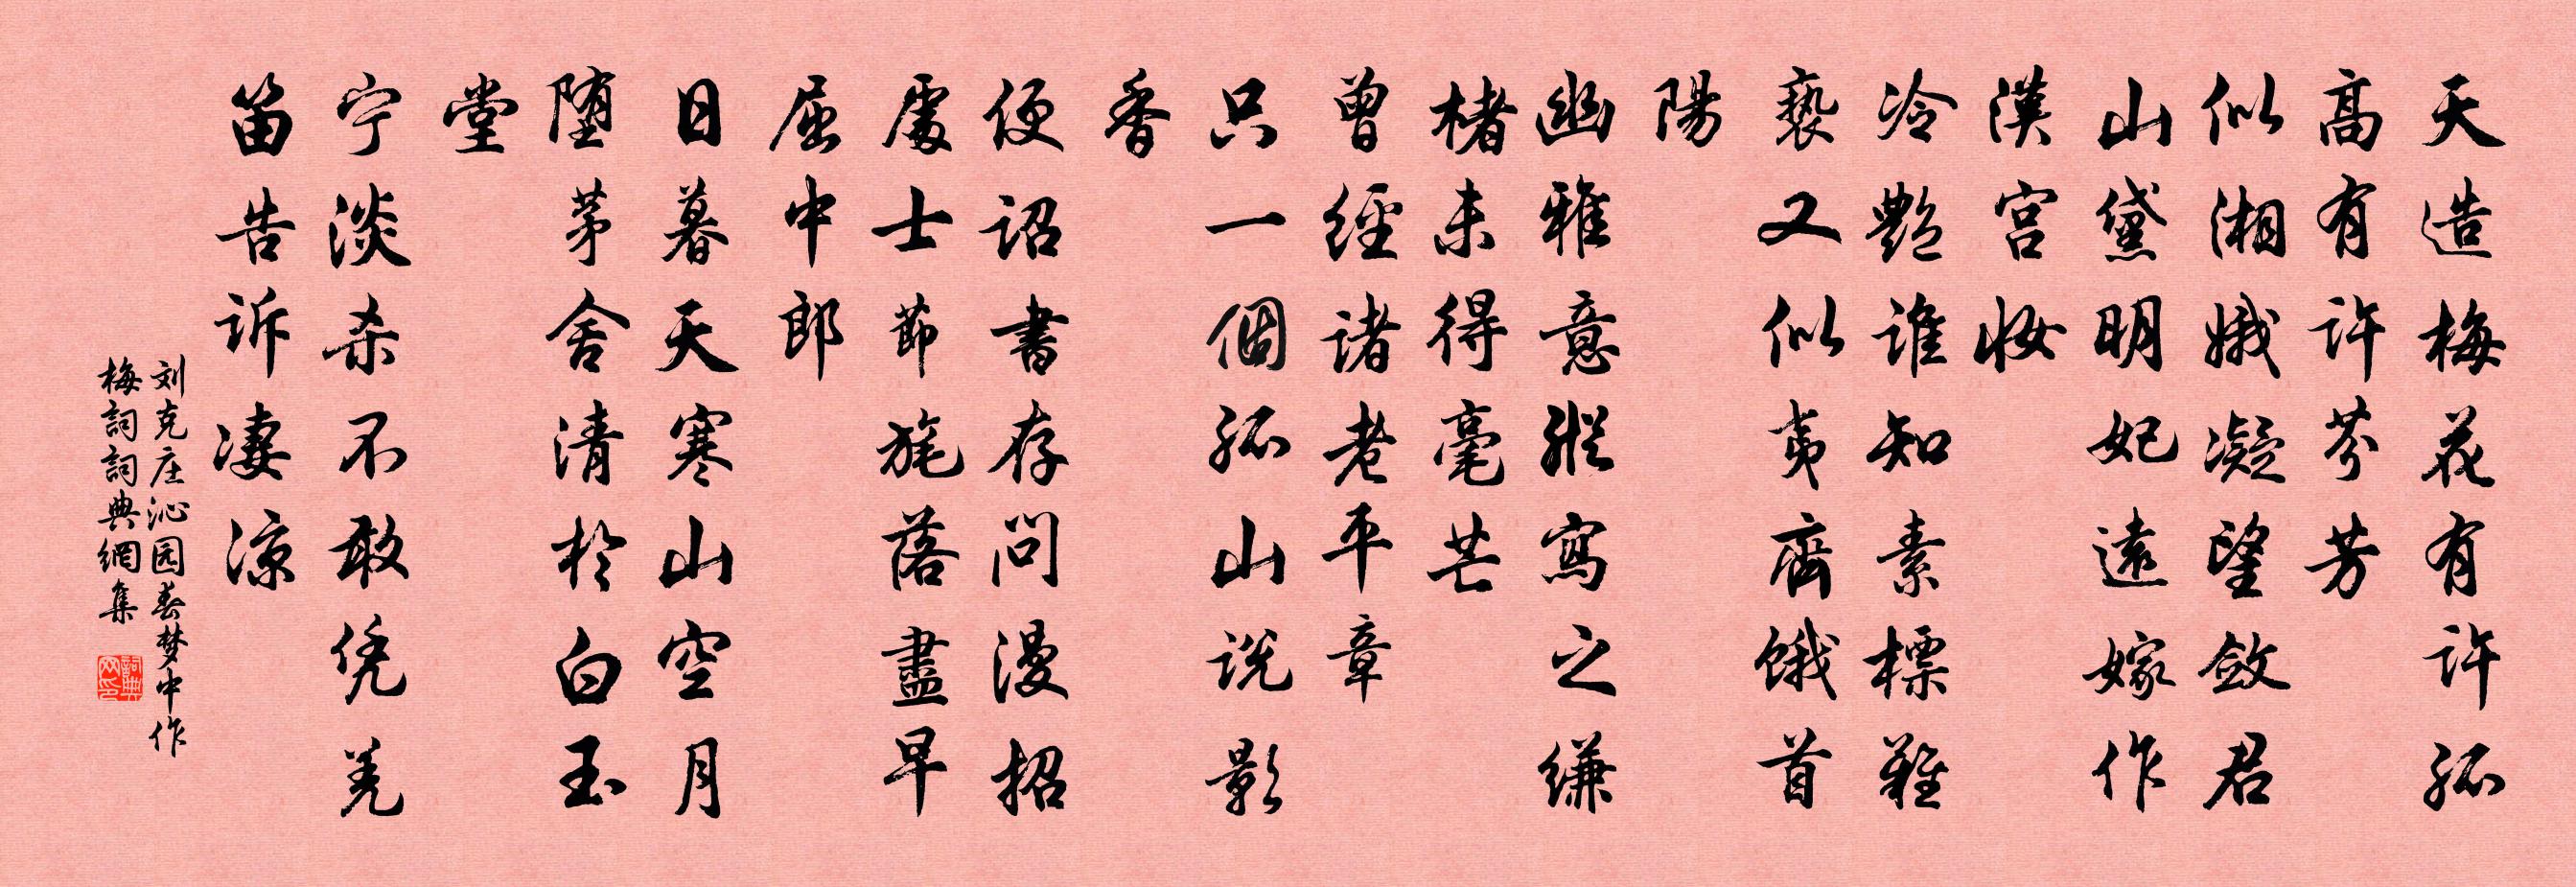 天造梅花有許孤
高有許芬芳
似湘娥凝望斂君
山黛明妃遠嫁作
漢宫妝
冷艷誰知素標難
褻又似夷齊餓首
陽
幽雅意縱寫之縑
楮未得毫芒
曾經諸老平章
只一個孤山説影
香
便詔書存問漫招
處士節旄落盡早
屈中郎
日暮天寒山空月
堕茅舍清於白玉
堂
宁淡杀不敢凭羌
笛告诉凄凉
刘克庄沁园春梦中作
梅詞詞典網集
詞典网印